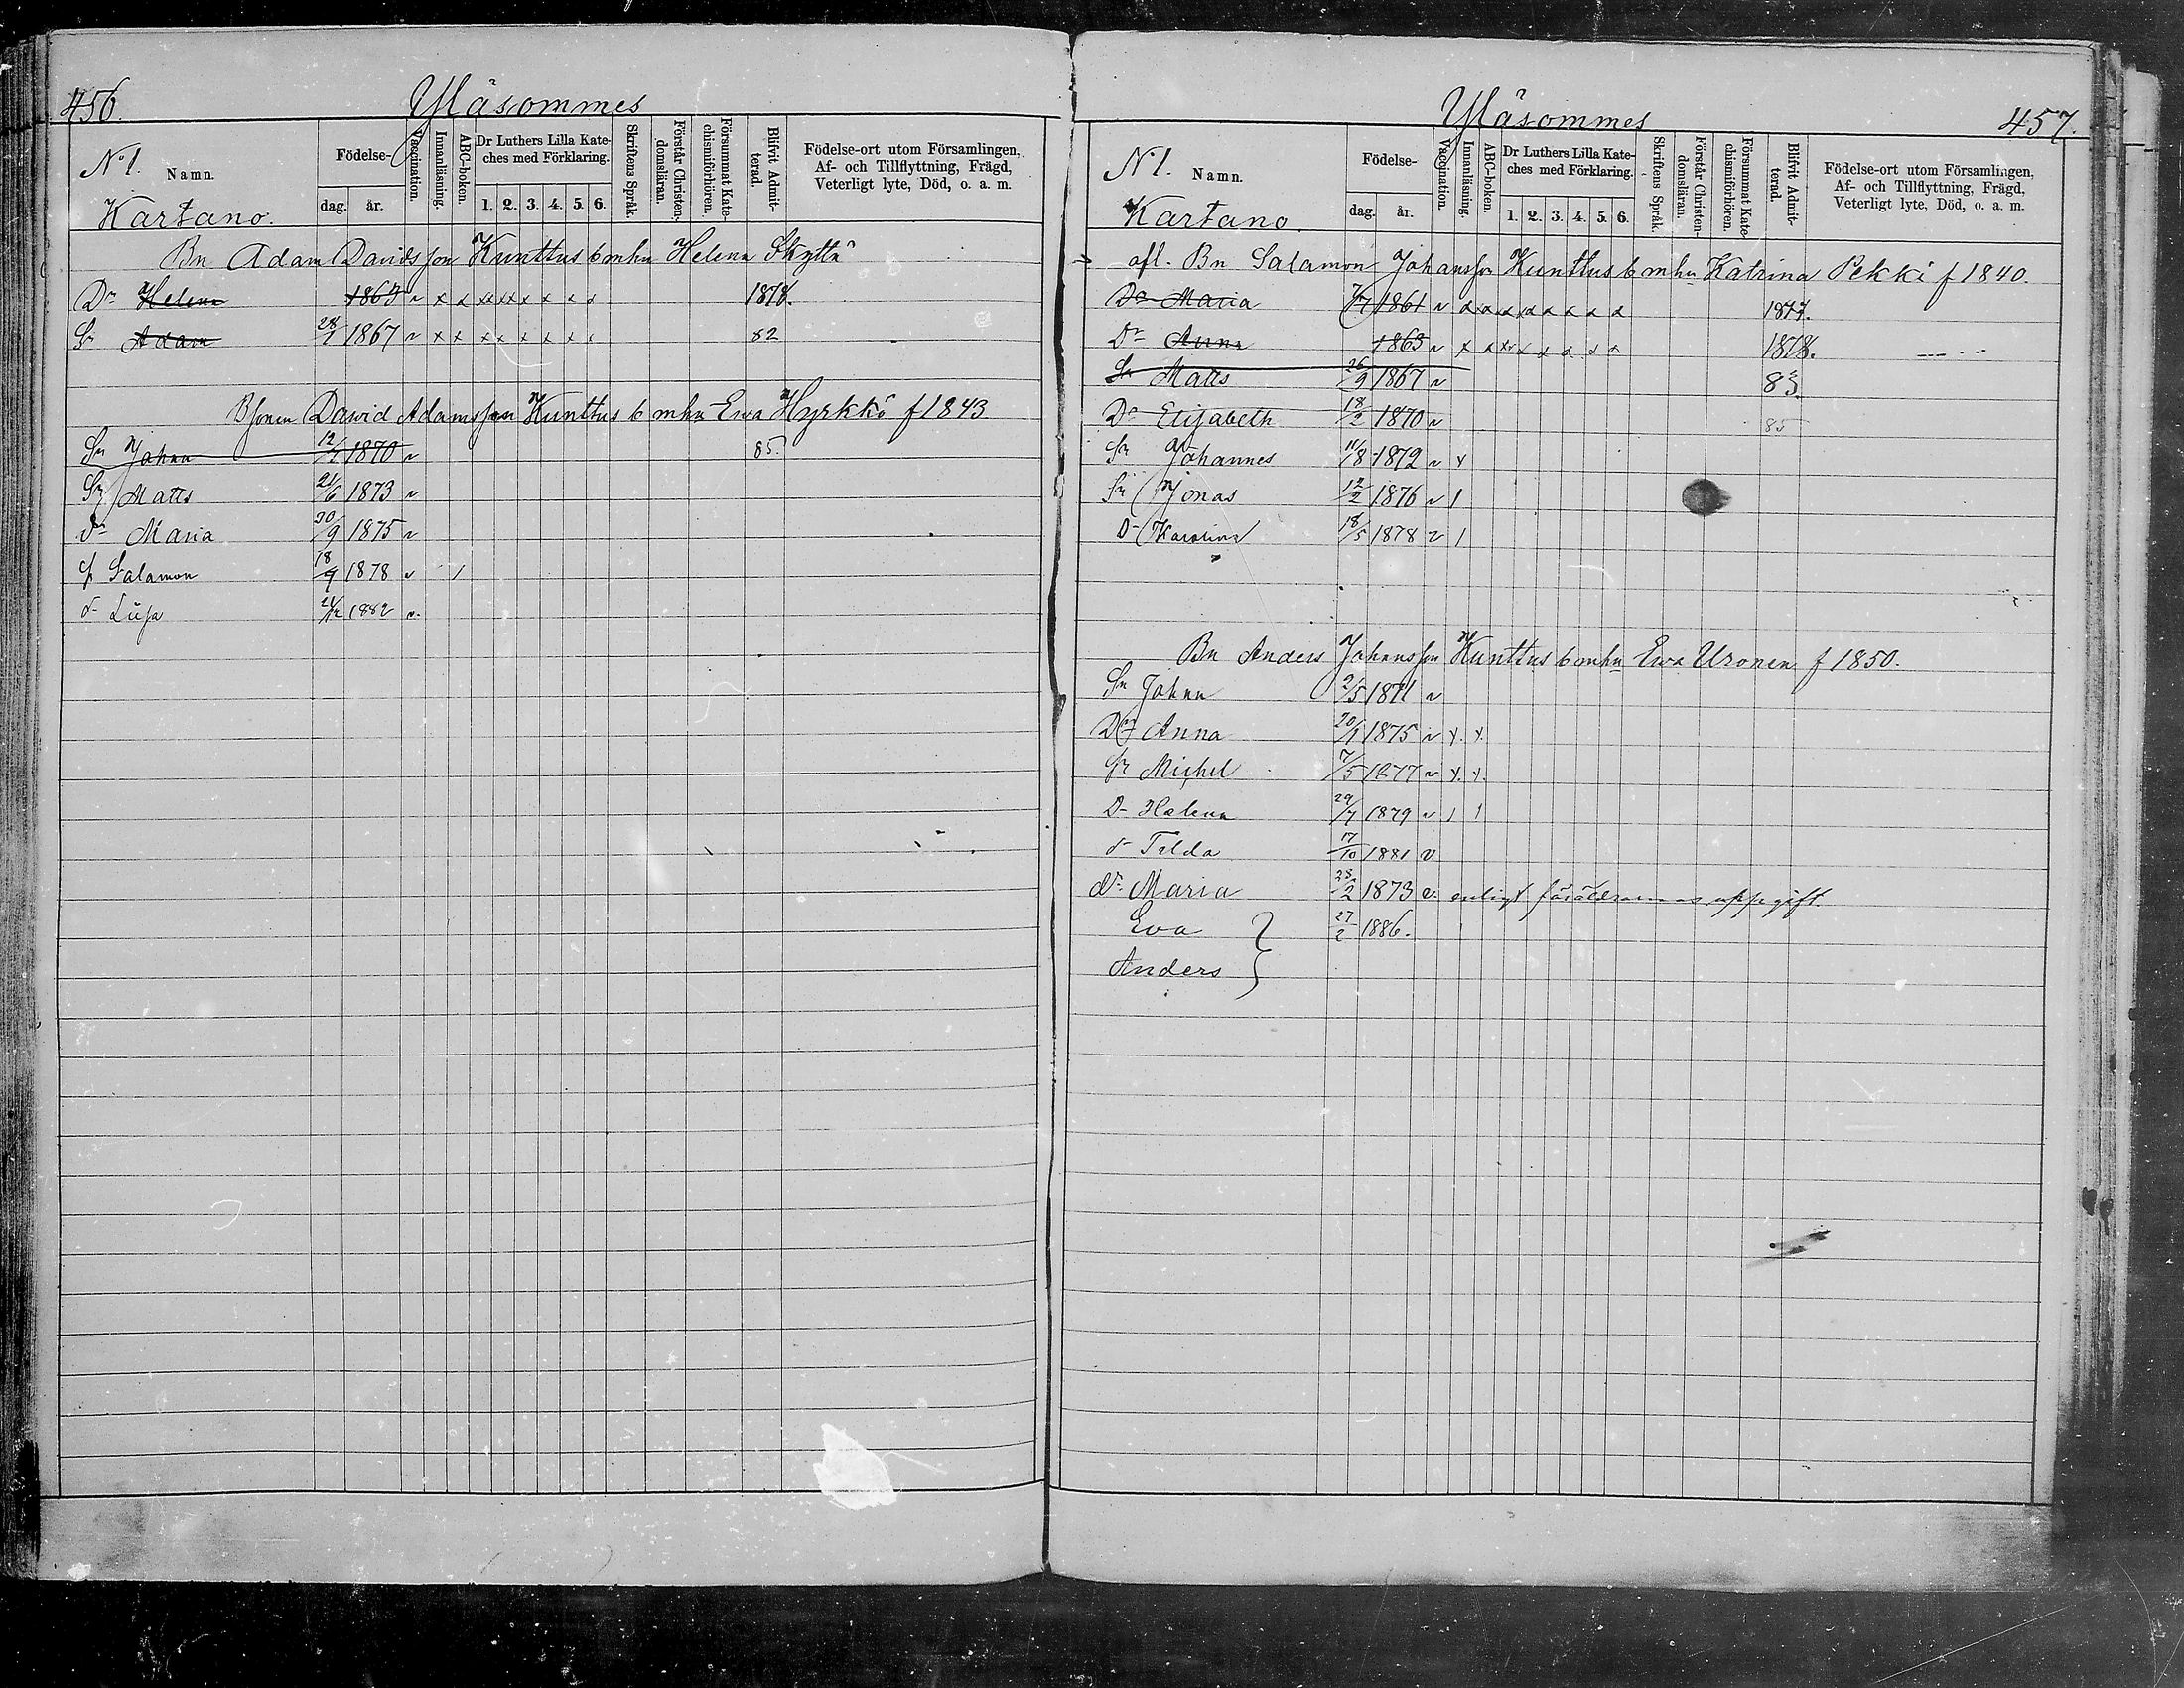 456.
Yläsommes
No 1. Namn.
Födelse-
dag. år.
Vaccination.
Innanläsning.
ABC-boken.
Dr Luthers Lilla Kate-
ches med Förklaring.
1. 2. 3. 4. 5. 6.
Skriftens Språk.
Förstår Christen-
domsläran.
Försummat Kate-
chismiförhören.
Blifvit Admit-
terad.
Födelse-ort utom Församlingen,
Af- och Tillflyttning, Frägd,
Veterligt lyte, Död, o. a. m.
Kartano.
Bn Adam Davidsson Kunttus o mhu Helena Skyttä
Dr Helena 1863 v x x xx xx x x x x 1878.
Sn Adam 28/1 1867 v x x x x x x x x 82
Bsonen David Adamsson Kunttus o mhu Ewa Hyrkkö f 1843
Sn Johan 12/7 1870 v 85.
Sn Matts 21/6 1873 v
Dr Maria 30/9 1875 v
Sn Salamon 18/9 1878 v 1
dr Lüsa 21/12 1882 v.
457.
Yläsommes
No 1. Namn.
Födelse-
dag. år.
Vaccination.
Innanläsning.
ABC-boken.
Dr Luthers Lilla Kate-
ches med Förklaring.
1. 2. 3. 4. 5. 6.
Skriftens Språk.
Förstår Christen-
domsläran.
Försummat Kate-
chismiförhören.
Blifvit Admit-
terad.
Födelse-ort utom Församlingen,
Af- och Tillflyttning, Frägd,
Veterligt lyte, Död, o. a. m.
Kartano.
afl. Bn Salamon Johansson Kunttus o mhu Katrina Pekki f 1840.
Dr Maria 1861 v x x x x x x x x 1877.
Dr Anna 1863 v x x xx x x x x x 1878.
Sn Matts 26/9 1867 v 83.
Dr Elisabeth 18/2 1870 v 85
Sn Johannes 11/8 1872 v x
Sn Jonas 12/2 1876 v 1
Dr Karolina 18/5 1878 v 1
Bn Anders Johansson Kunttus o mhu Ewa Uronen f 1850.
Sn Johan 2/5 1871 v
Dr Anna 20/1 1875 v x. x.
Sn Michel 7/5 1877 v x. x.
Dr Helena 29/7 1879 v 1 1
dr Tilda 17/10 1881 v
dr Maria 28/2 1873 v. enligt föräldrarnas uppgift.
Eva } 27/2 1886.
Anders